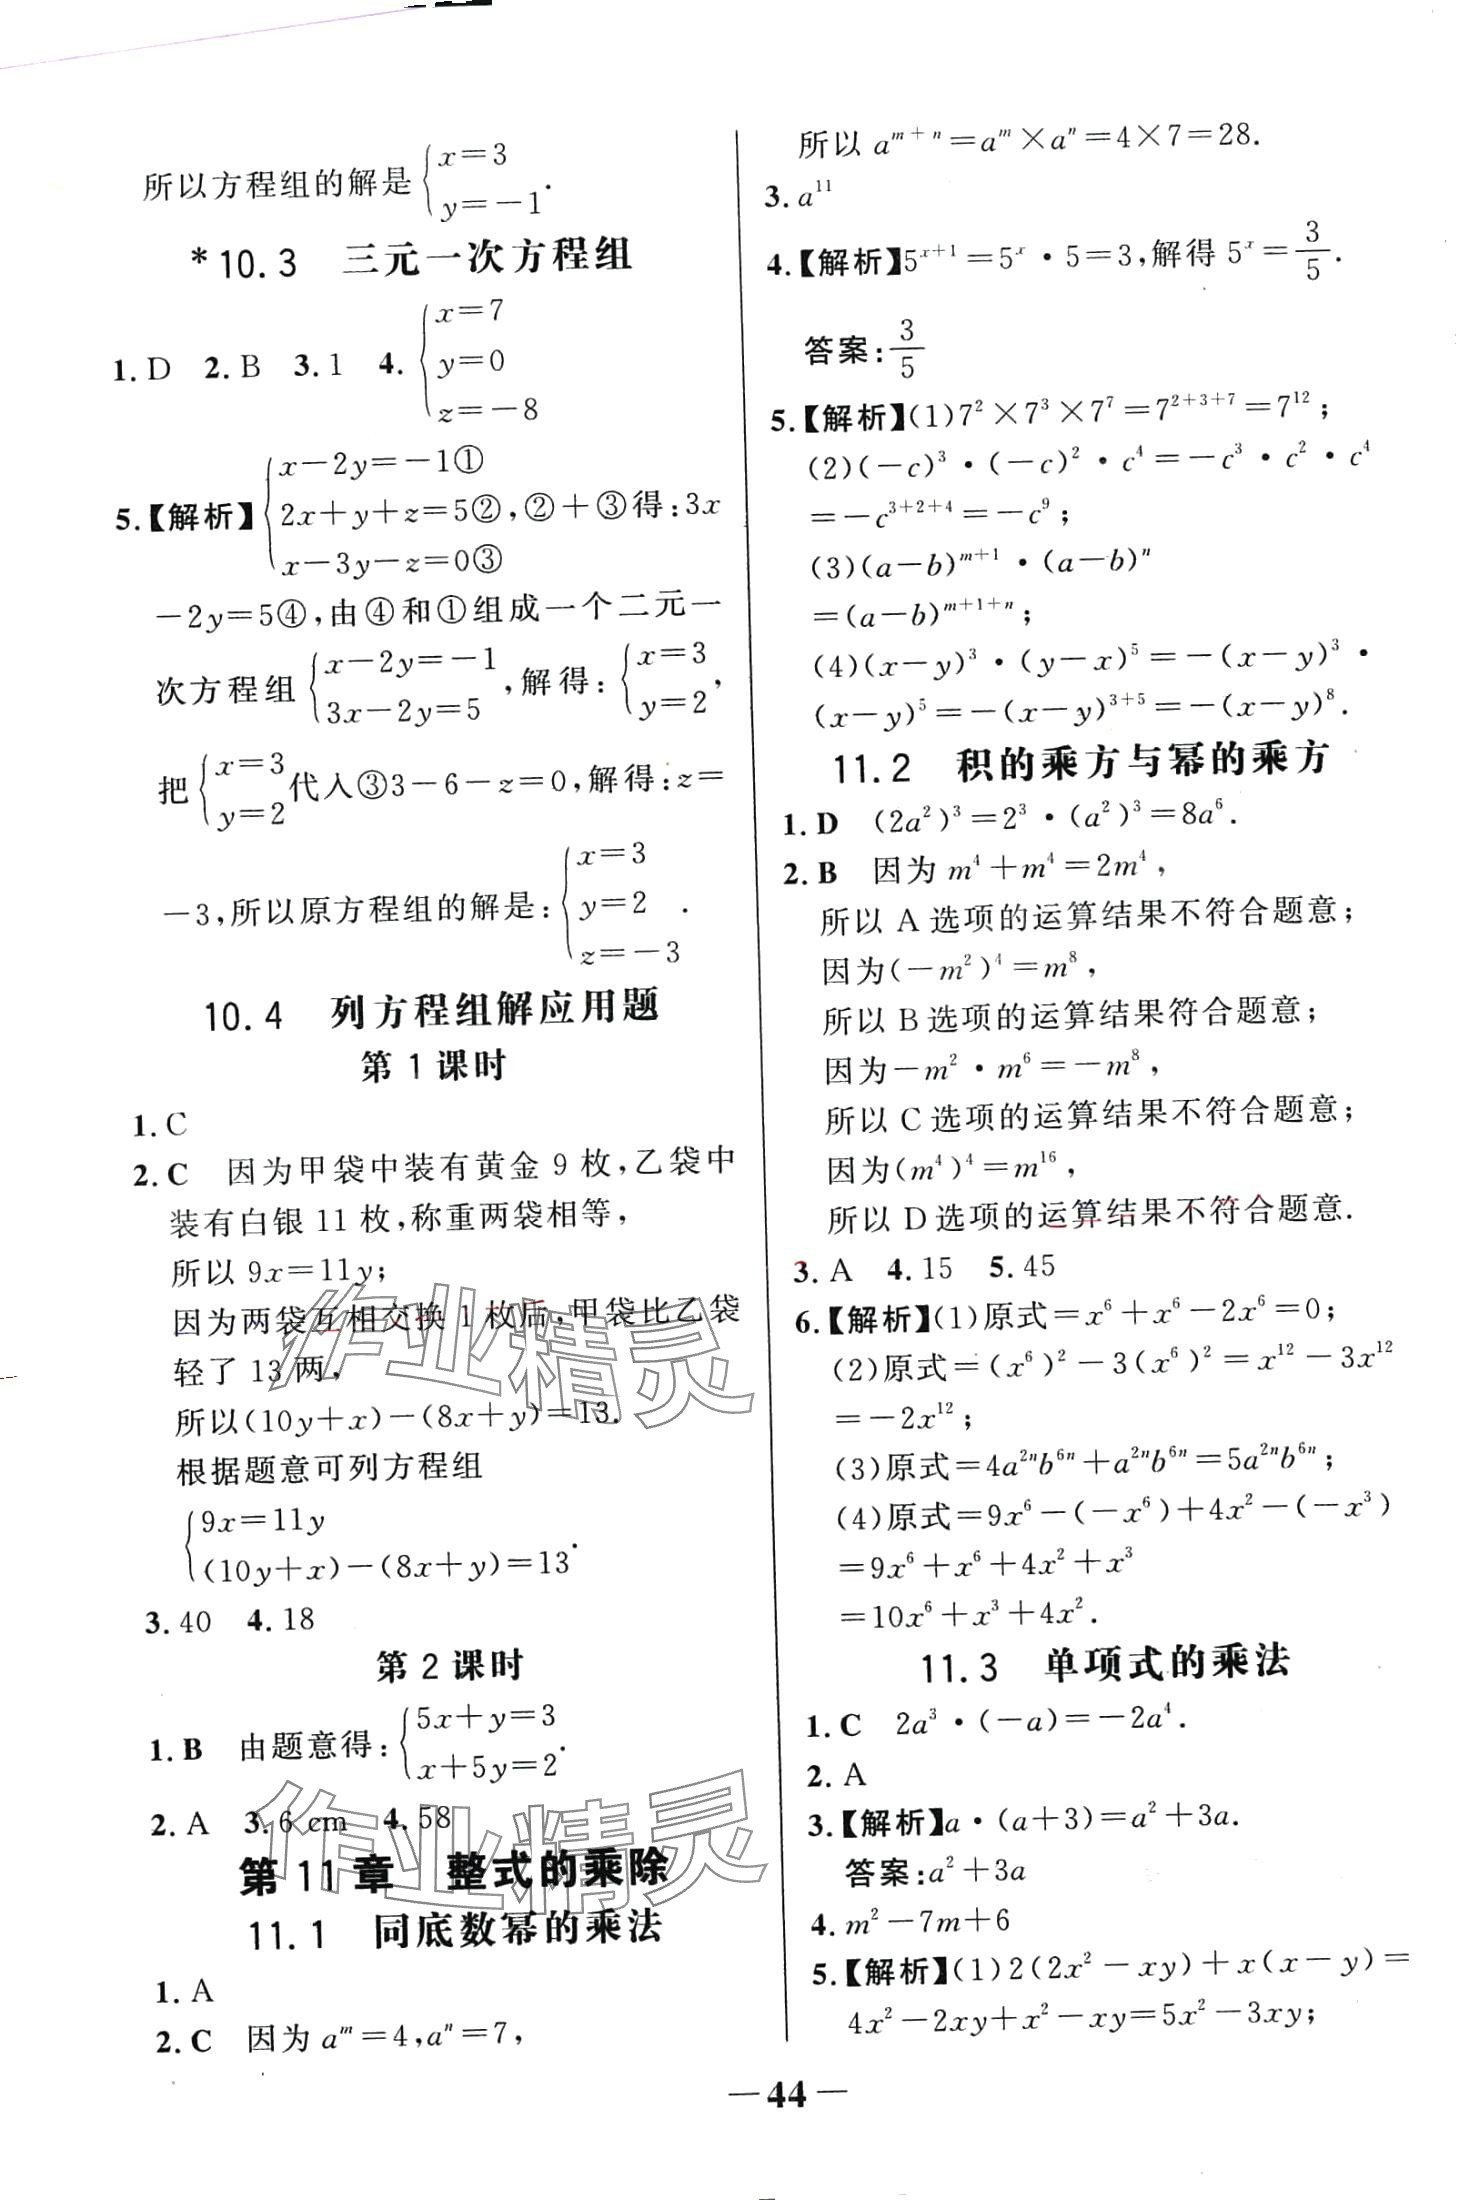 所以方程组的解是{x=3
y=-1.
*10.3 三元一次方程组
1.D 2.B 3.1 4.{x=7
y=0
z=-8
5.【解析】{x-2y=-1①
2x+y+z=5②,②+③得:3x
x-3y-z=0③
-2y=5④,由④和①组成一个二元一
次方程组{x-2y=-1
3x-2y=5,解得:{x=3
y=2,
把{x=3
y=2代入③3-6-z=0,解得:z=
-3,所以原方程组的解是:{x=3
y=2
z=-3.
10.4 列方程组解应用题
第1课时
1.C
2.C 因为甲袋中装有黄金9枚,乙袋中
装有白银11枚,称重两袋相等,
所以9x=11y;
因为两袋互相交换1枚后,甲袋比乙袋
轻了13两,
所以(10y+x)-(8x+y)=13.
根据题意可列方程组
{9x=11y
(10y+x)-(8x+y)=13.
3.40 4.18
第2课时
1.B 由题意得:{5x+y=3
x+5y=2.
2.A 3.6 cm 4.58
第11章 整式的乘除
11.1 同底数幂的乘法
1.A
2.C 因为a^m=4,a^n=7,
所以a^{m+n}=a^m×a^n=4×7=28.
3.a^{11}
4.【解析】5^{x+1}=5^x·5=3,解得5^x=3/5.
答案:3/5
5.【解析】(1)7^2×7^3×7^7=7^{2+3+7}=7^{12};
(2)(-c)^3·(-c)^2·c^4=-c^3·c^2·c^4
=-c^{3+2+4}=-c^9;
(3)(a-b)^{m+1}·(a-b)^n
=(a-b)^{m+1+n};
(4)(x-y)^3·(y-x)^5=-(x-y)^3·
(x-y)^5=-(x-y)^{3+5}=-(x-y)^8.
11.2 积的乘方与幂的乘方
1.D (2a^2)^3=2^3·(a^2)^3=8a^6.
2.B 因为m^4+m^4=2m^4,
所以A选项的运算结果不符合题意;
因为(-m^2)^4=m^8,
所以B选项的运算结果符合题意;
因为-m^2·m^6=-m^8,
所以C选项的运算结果不符合题意;
因为(m^4)^4=m^{16},
所以D选项的运算结果不符合题意.
3.A 4.15 5.45
6.【解析】(1)原式=x^6+x^6-2x^6=0;
(2)原式=(x^6)^2-3(x^6)^2=x^{12}-3x^{12}
=-2x^{12};
(3)原式=4a^{2n}b^{6n}+a^{2n}b^{6n}=5a^{2n}b^{6n};
(4)原式=9x^6-(-x^6)+4x^2-(-x^3)
=9x^6+x^6+4x^2+x^3
=10x^6+x^3+4x^2.
11.3 单项式的乘法
1.C 2a^3·(-a)=-2a^4.
2.A
3.【解析】a·(a+3)=a^2+3a.
答案:a^2+3a
4.m^2-7m+6
5.【解析】(1)2(2x^2-xy)+x(x-y)=
4x^2-2xy+x^2-xy=5x^2-3xy;
—44—
作业精灵
作业精灵